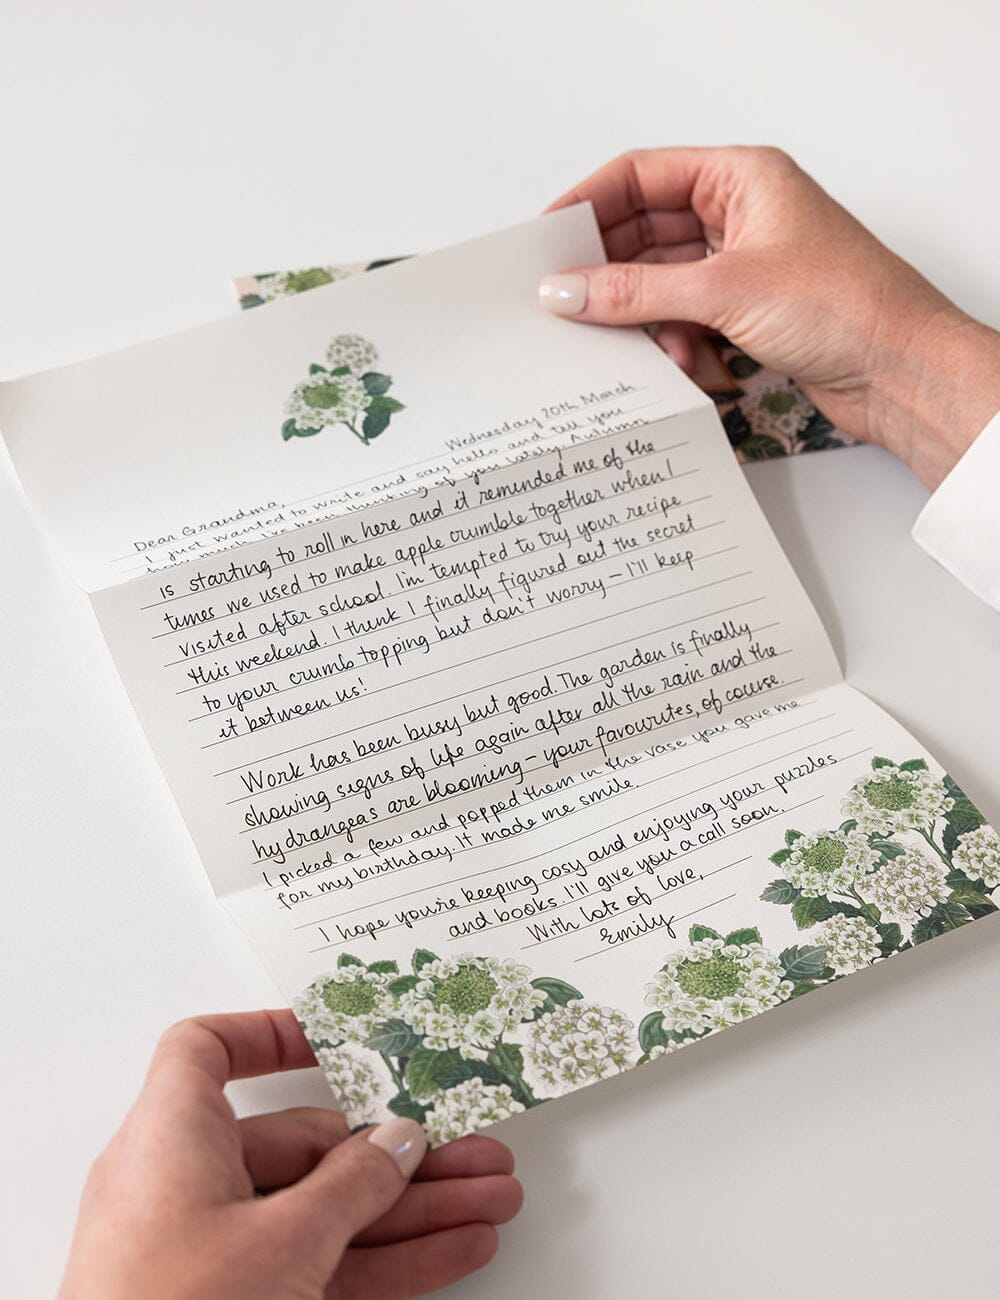 Wednesday 20th March
Dear Grandma,
I just wanted to write and say hello and tell you
how much I've been thinking of you lately. Autumn
is starting to roll in here and it reminded me of the
times we used to make apple crumble together when I
visited after school. I'm tempted to try your recipe
this weekend. I think I finally figured out the secret
to your crumb topping but don't worry – I'll keep
it between us!
Work has been busy but good. The garden is finally
showing signs of life again after all the rain and the
hydrangeas are blooming – your favourites, of course.
I picked a few and popped them in the vase you gave me
for my birthday. It made me smile.
I hope you're keeping cosy and enjoying your puzzles
and books. I'll give you a call soon.
With lots of love,
Emily